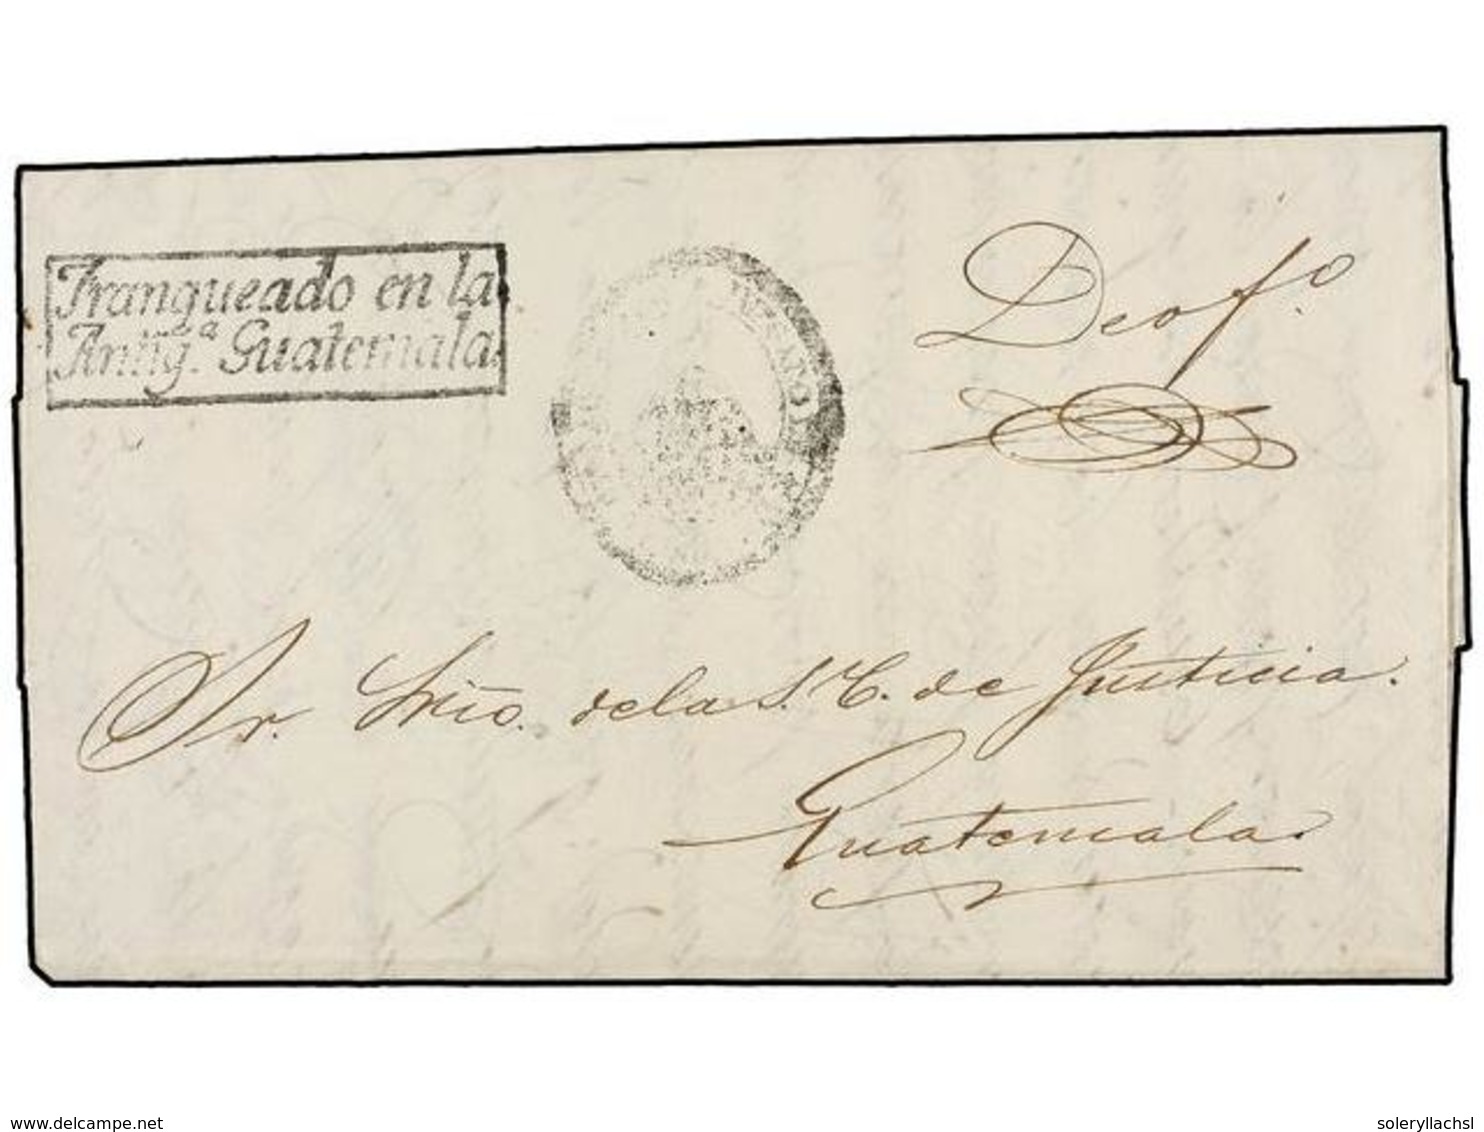 Franqueado en la
Antigª. Guatemala.
De ofº
Sr. Srio. de la S. C. de Justicia.
Guatemala.
delcampe.net
soleryllachsl